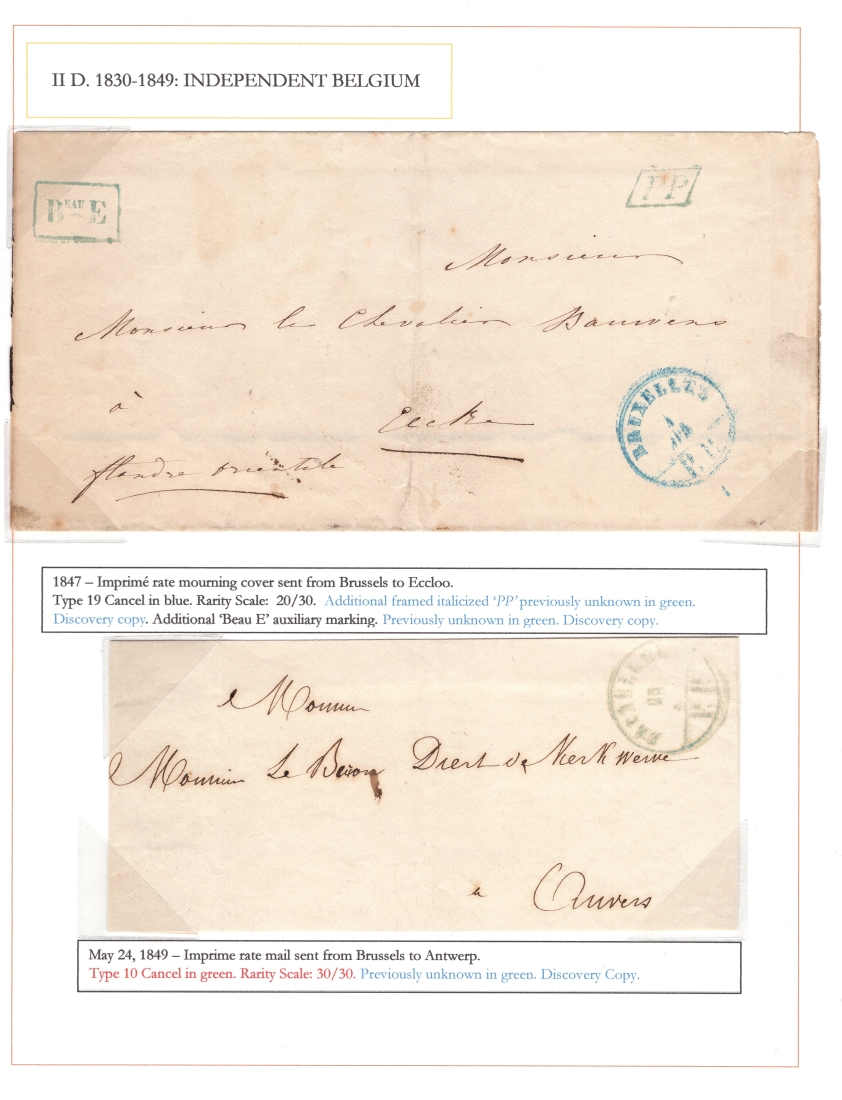 II D. 1830-1849: INDEPENDENT BELGIUM
BEAU E
PP
Monsieur
Monsieur le Chevalier Bauwens
à
Eecloo
flandre orientale
BRUXELLES
1
P.P.
1847 – Imprimé rate mourning cover sent from Brussels to Eccloo.
Type 19 Cancel in blue. Rarity Scale: 20/30. Additional framed italicized ‘PP’ previously unknown in green.
Discovery copy. Additional ‘Beau E’ auxiliary marking. Previously unknown in green. Discovery copy.
BRUXELLES
P.P.
Monsieur
Monsieur Le Baron Diert de Kerkwerve
a Anvers
May 24, 1849 – Imprime rate mail sent from Brussels to Antwerp.
Type 10 Cancel in green. Rarity Scale: 30/30. Previously unknown in green. Discovery Copy.